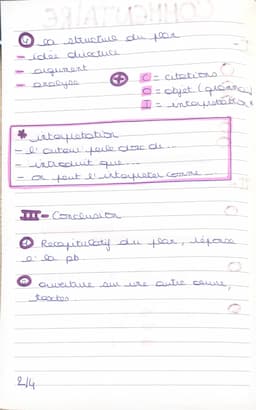 ② La structure du plan
- idée directrice
- argument
- analyse
+
C = citations
O = objet (grammaire
I = interprétation
* interprétation
- l'auteur parle donc de ...
- introduit que ...
- on peut l'interpréter comme ...
III - Conclusion
① Recapitulatif du plan, réponse
à la pb
② ouverture sur une autre oeuvre,
textes
2/4